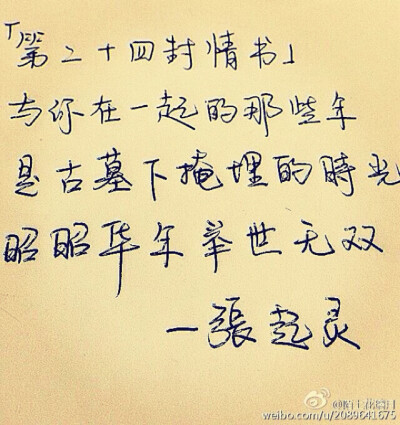 「第二十四封情书」
与你在一起的那些年
是古墓下掩埋的時光
昭昭华年举世无双
一張起灵
weibo.com/u/2089641675